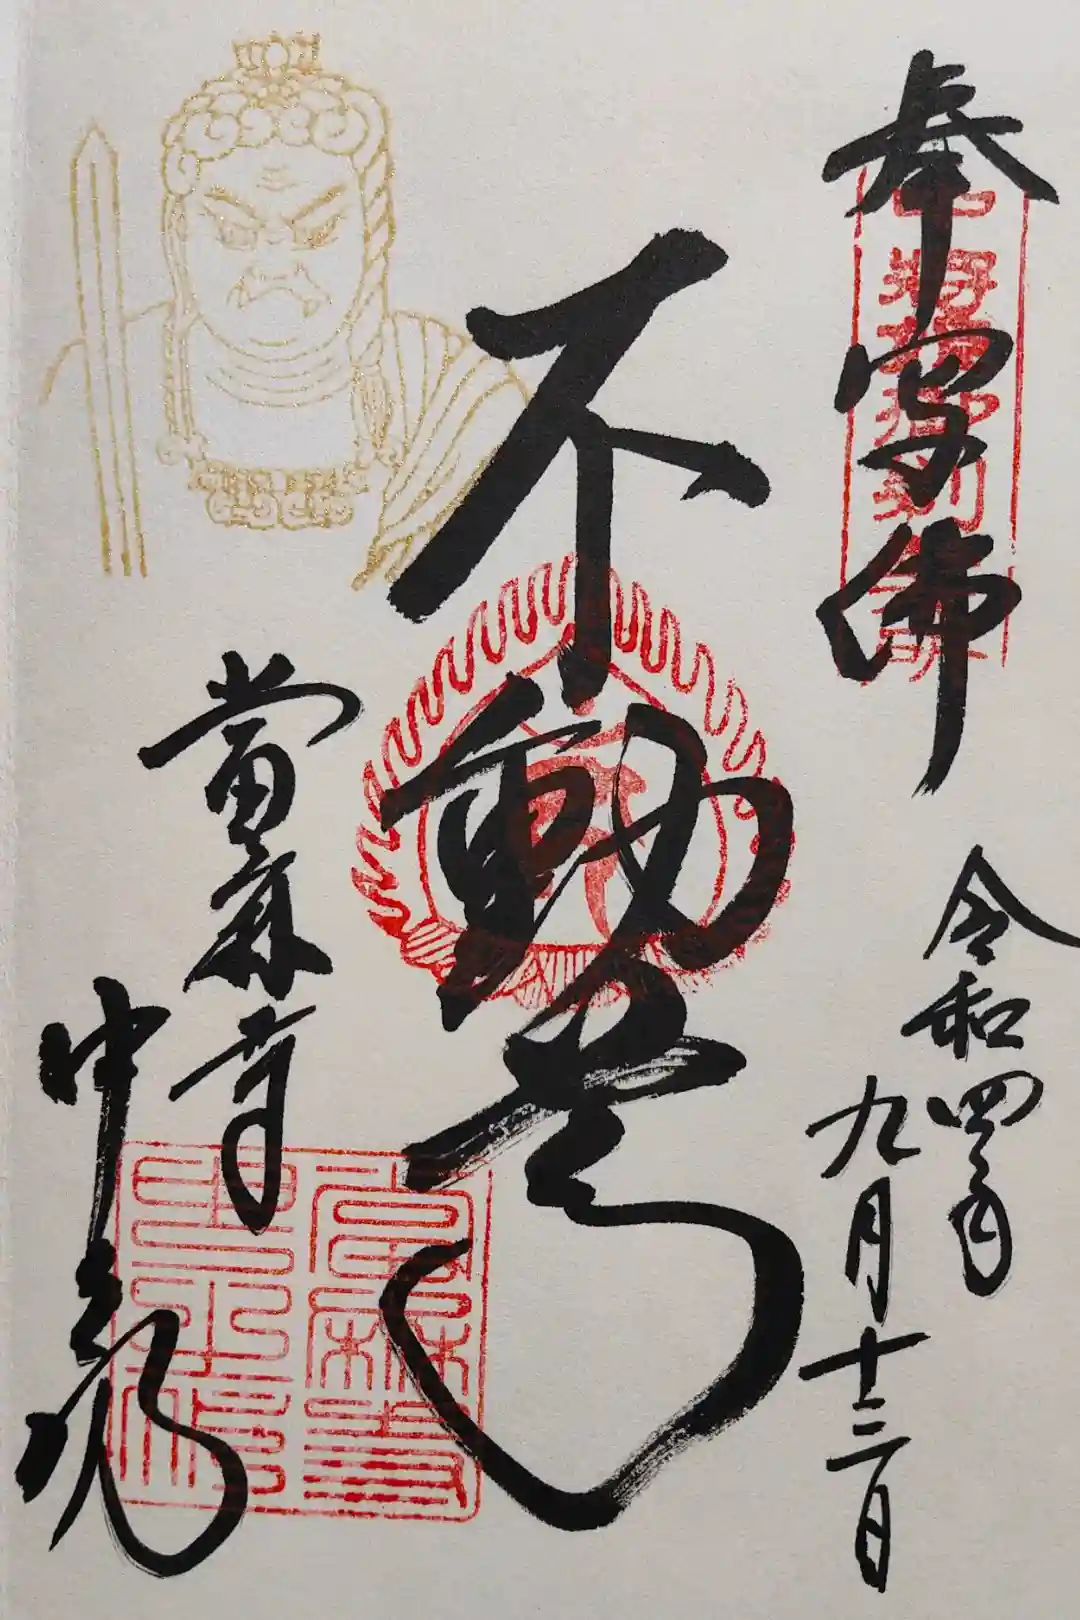 奉写佛
令和四年
九月十三日
不動尊
當麻寺
中之坊